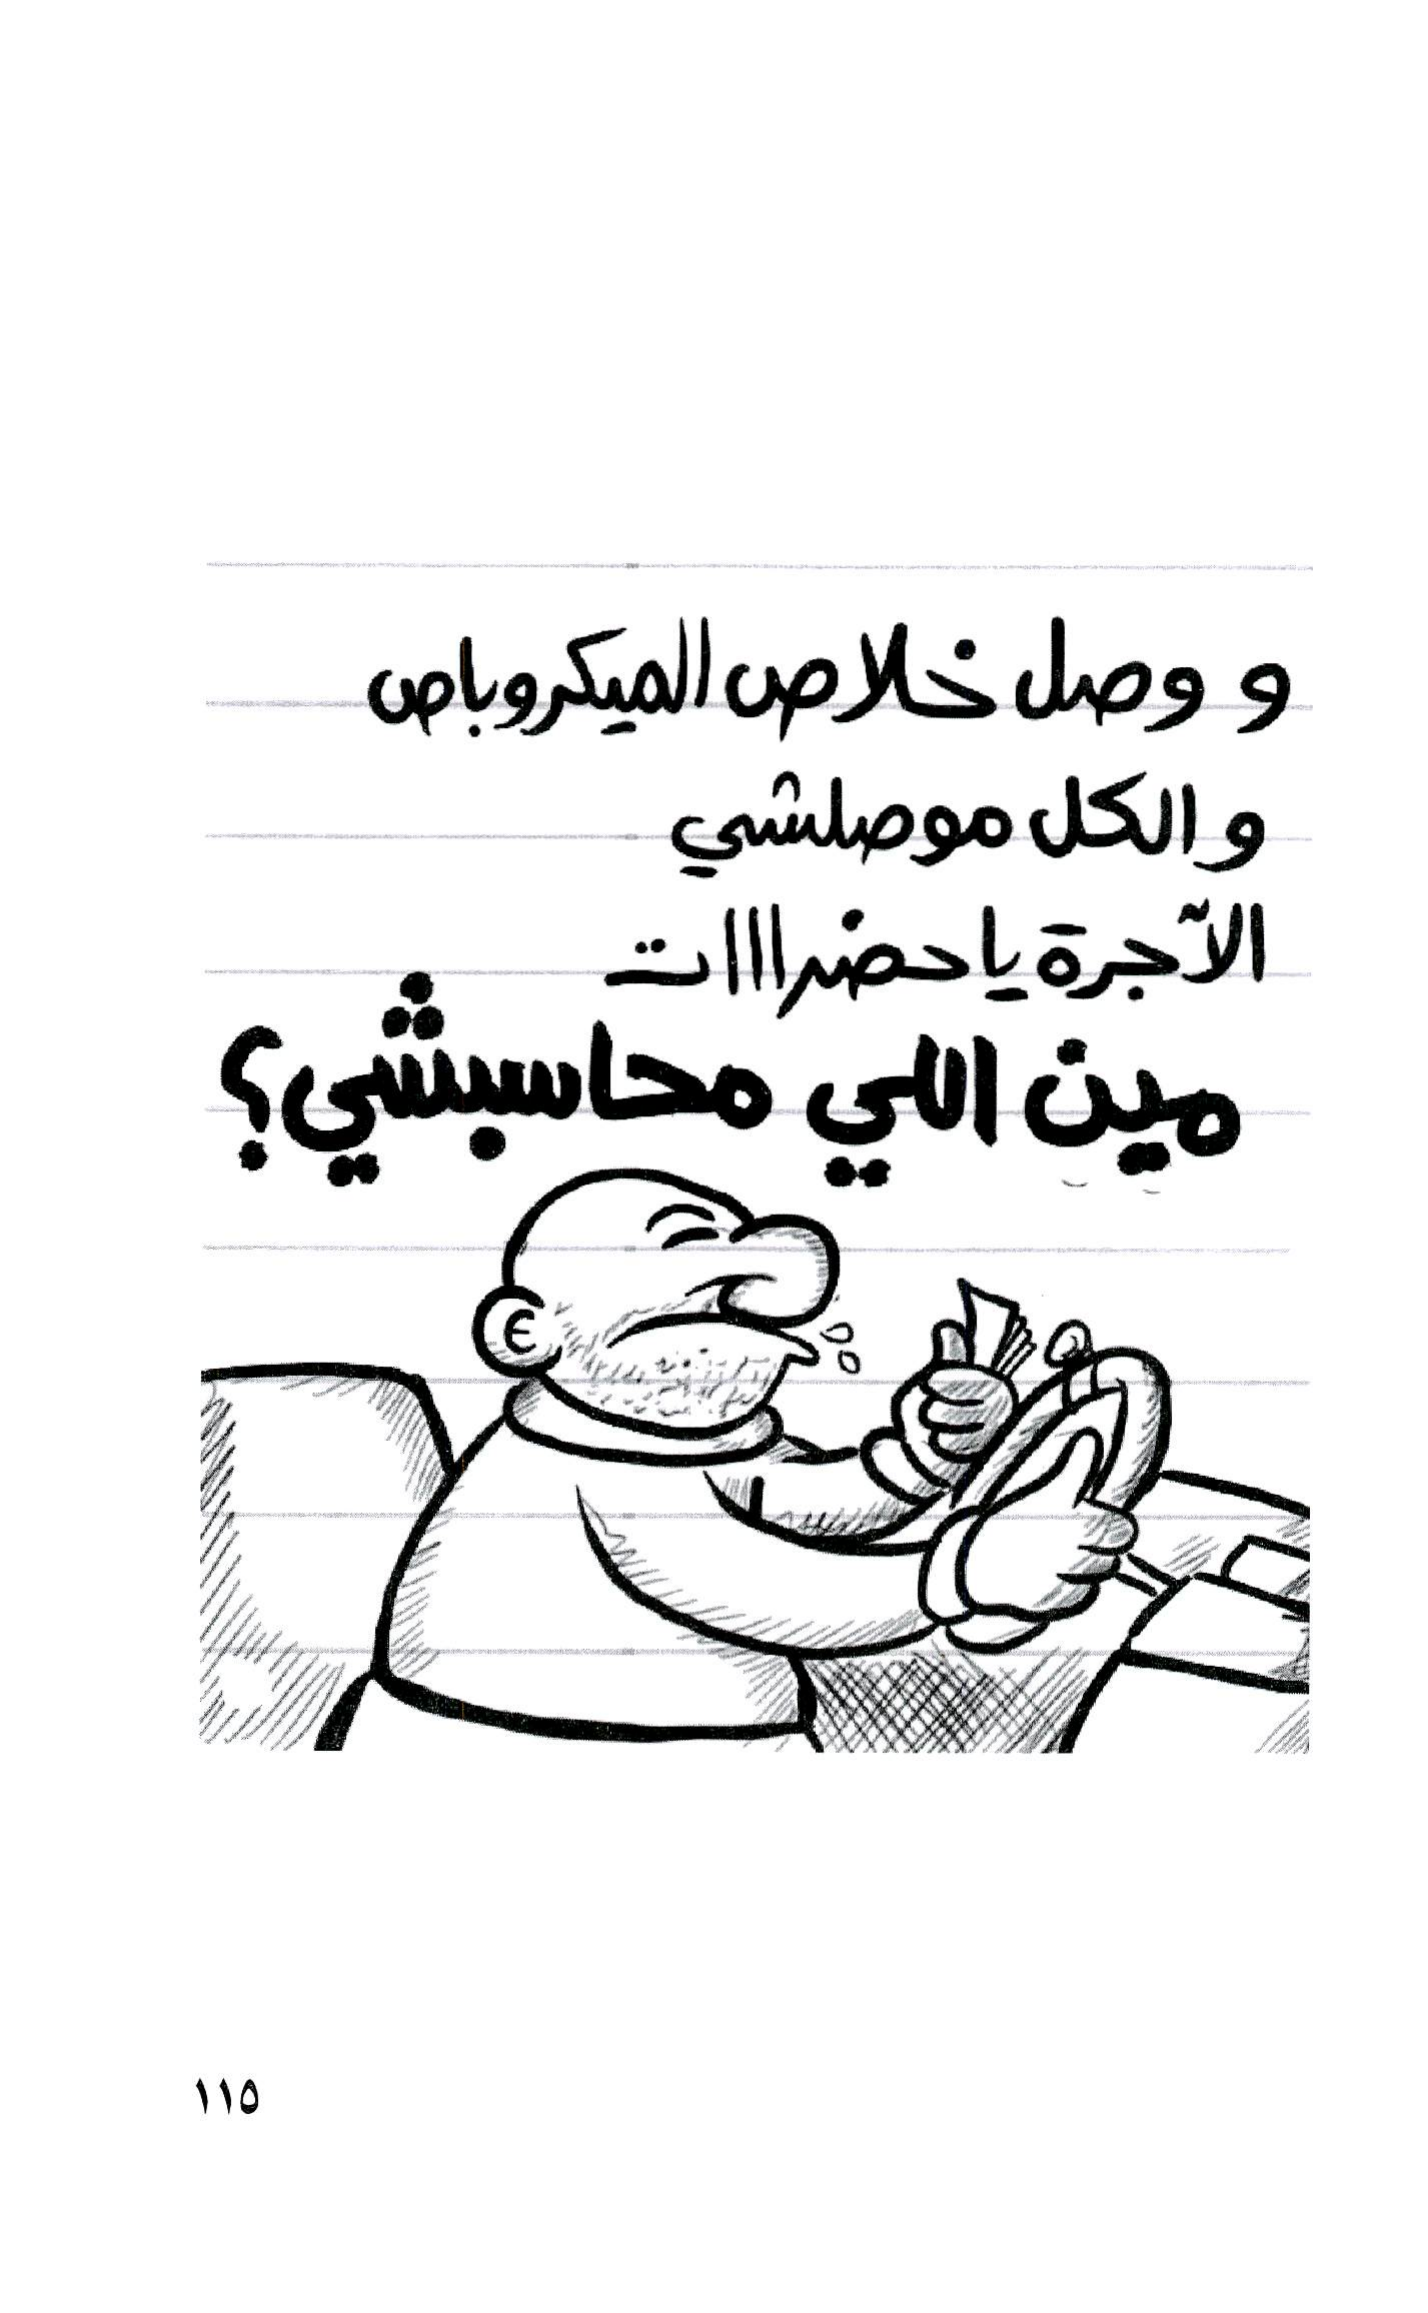 و وصل خلاص الميكروباص
والكل موصلشي
الآجرة ياحضراااات
مين اللي محاسبشي؟
١١٥